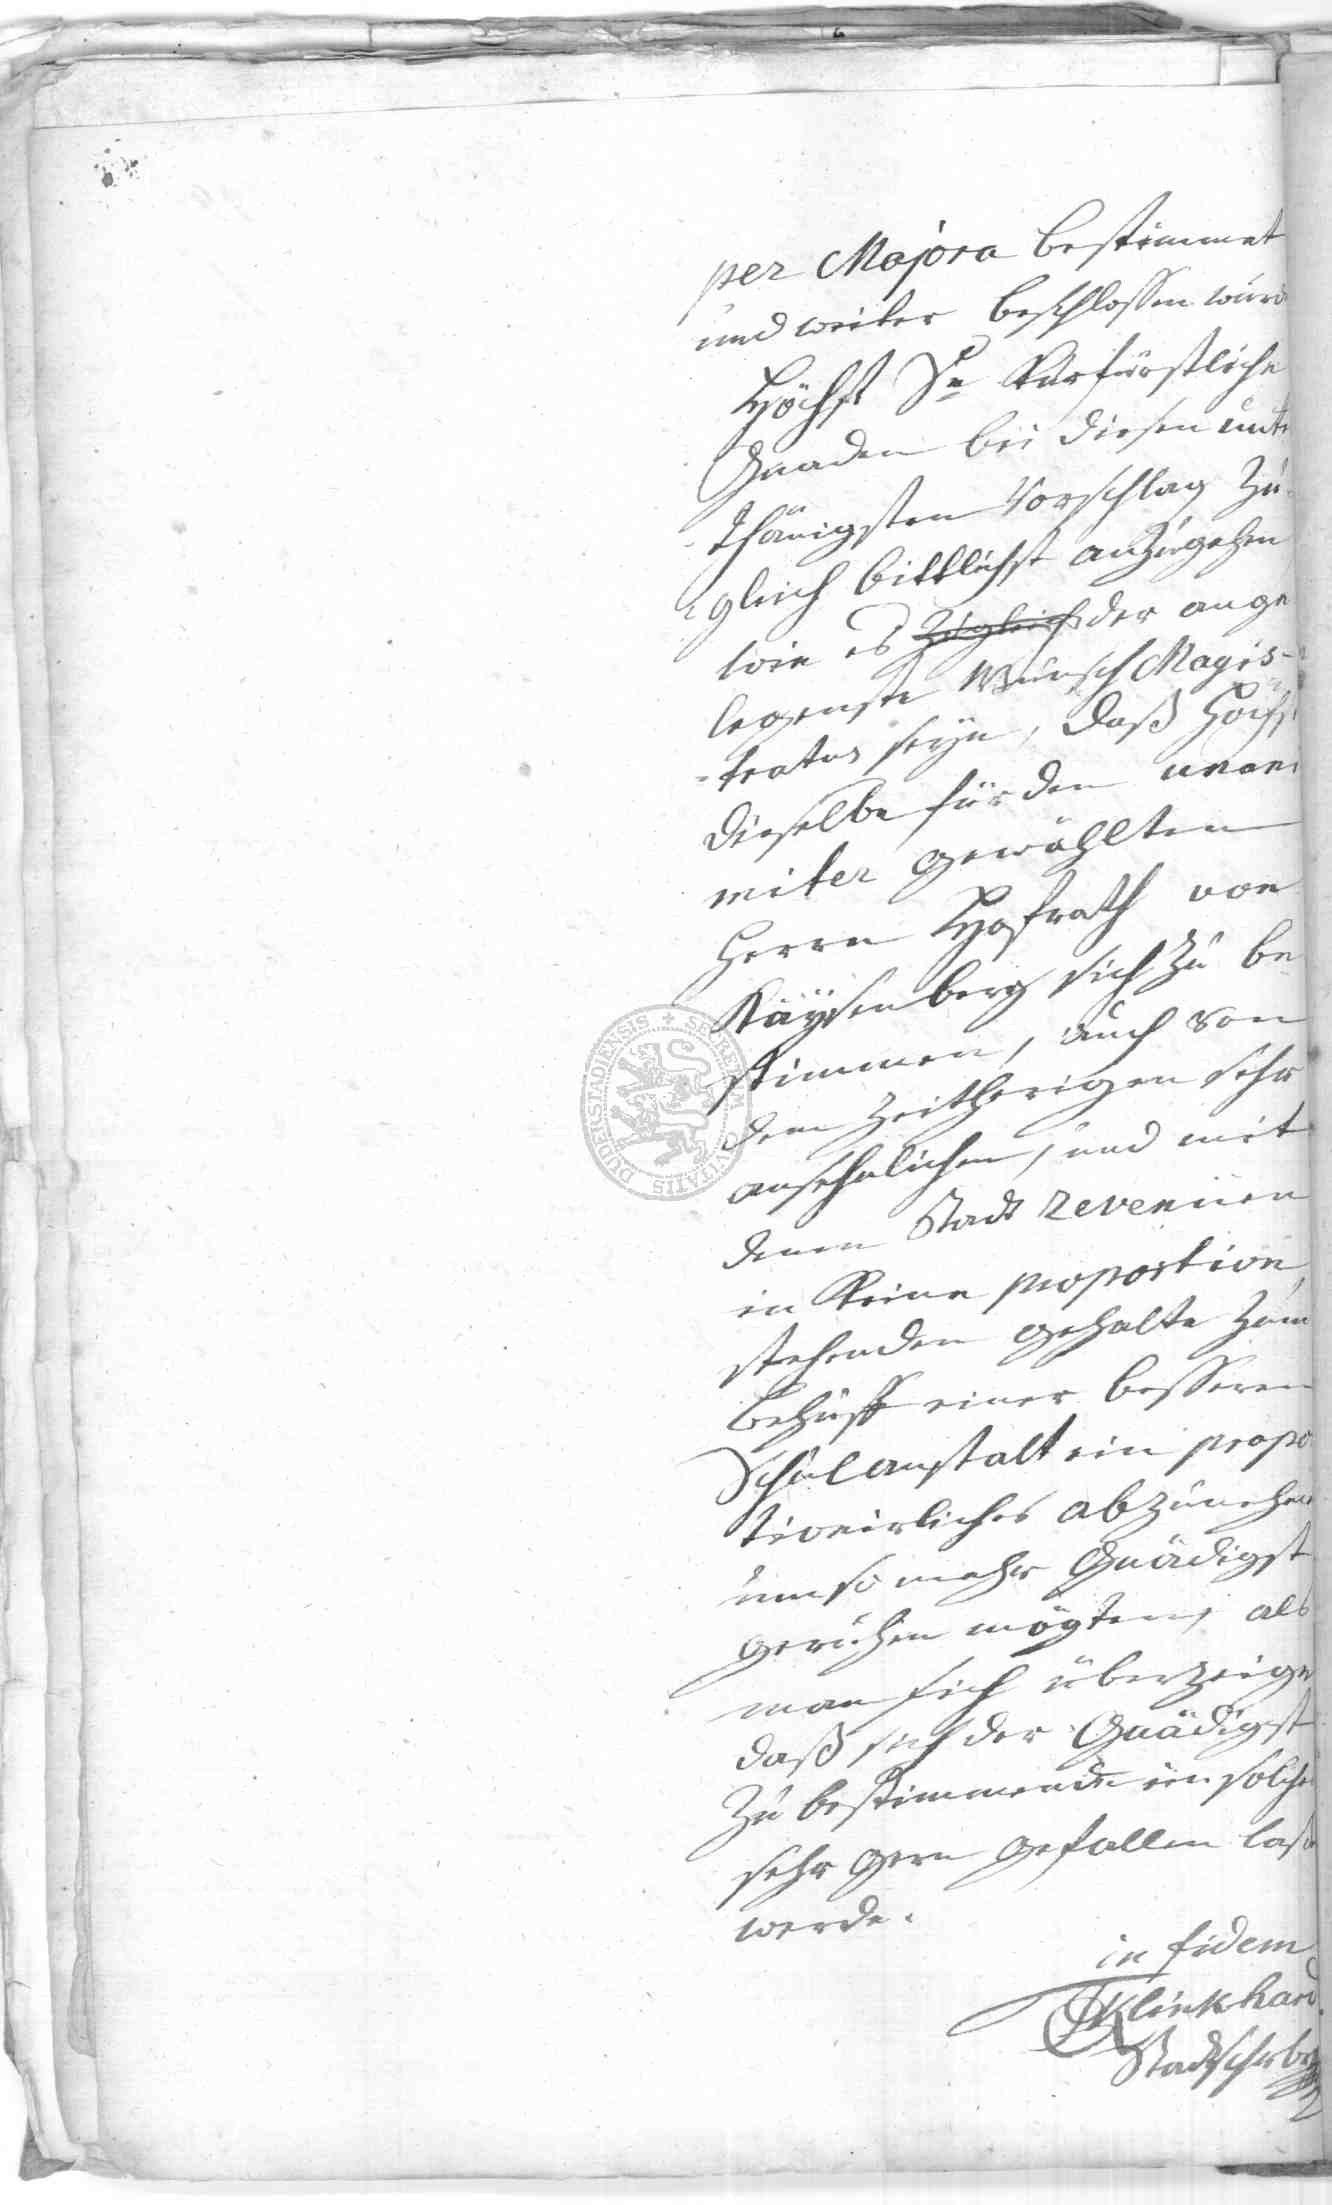 per Majora bestimmet
und weiter beschlossen wurd
Höchst Se Kurfürstliche
Gnaden bei diesen unter
thänigsten Vorschlag zu-
gleich bittlichst anzugehen
wie es zugleich der ange
legenste Wunsch Magis-
-tratus seyn, daß Höchst
dieselbe für den unani
miter gewählten
Herrn Hofrath von
Kaysenberg sich zu be
stimmen, auch von
dem zeitherigen sehr
ansehnlichen, und mit
denen Stadt revenüen
in keine proportion
stehenden gehalte zum
Behuff einer besseren
Schulanstalt ein propo
tionirliches abzunehmen
um so mehr Gnädigst
geruhen mögten, als
man sich überzeige
daß sich der Gnädigst
zu bestimmende ein solches
sehr gern gefallen lassen
werde.
in fidem
Klinkhard
Stadtschrbr
SECRETUM CIVITATIS DUDERSTADIENSIS